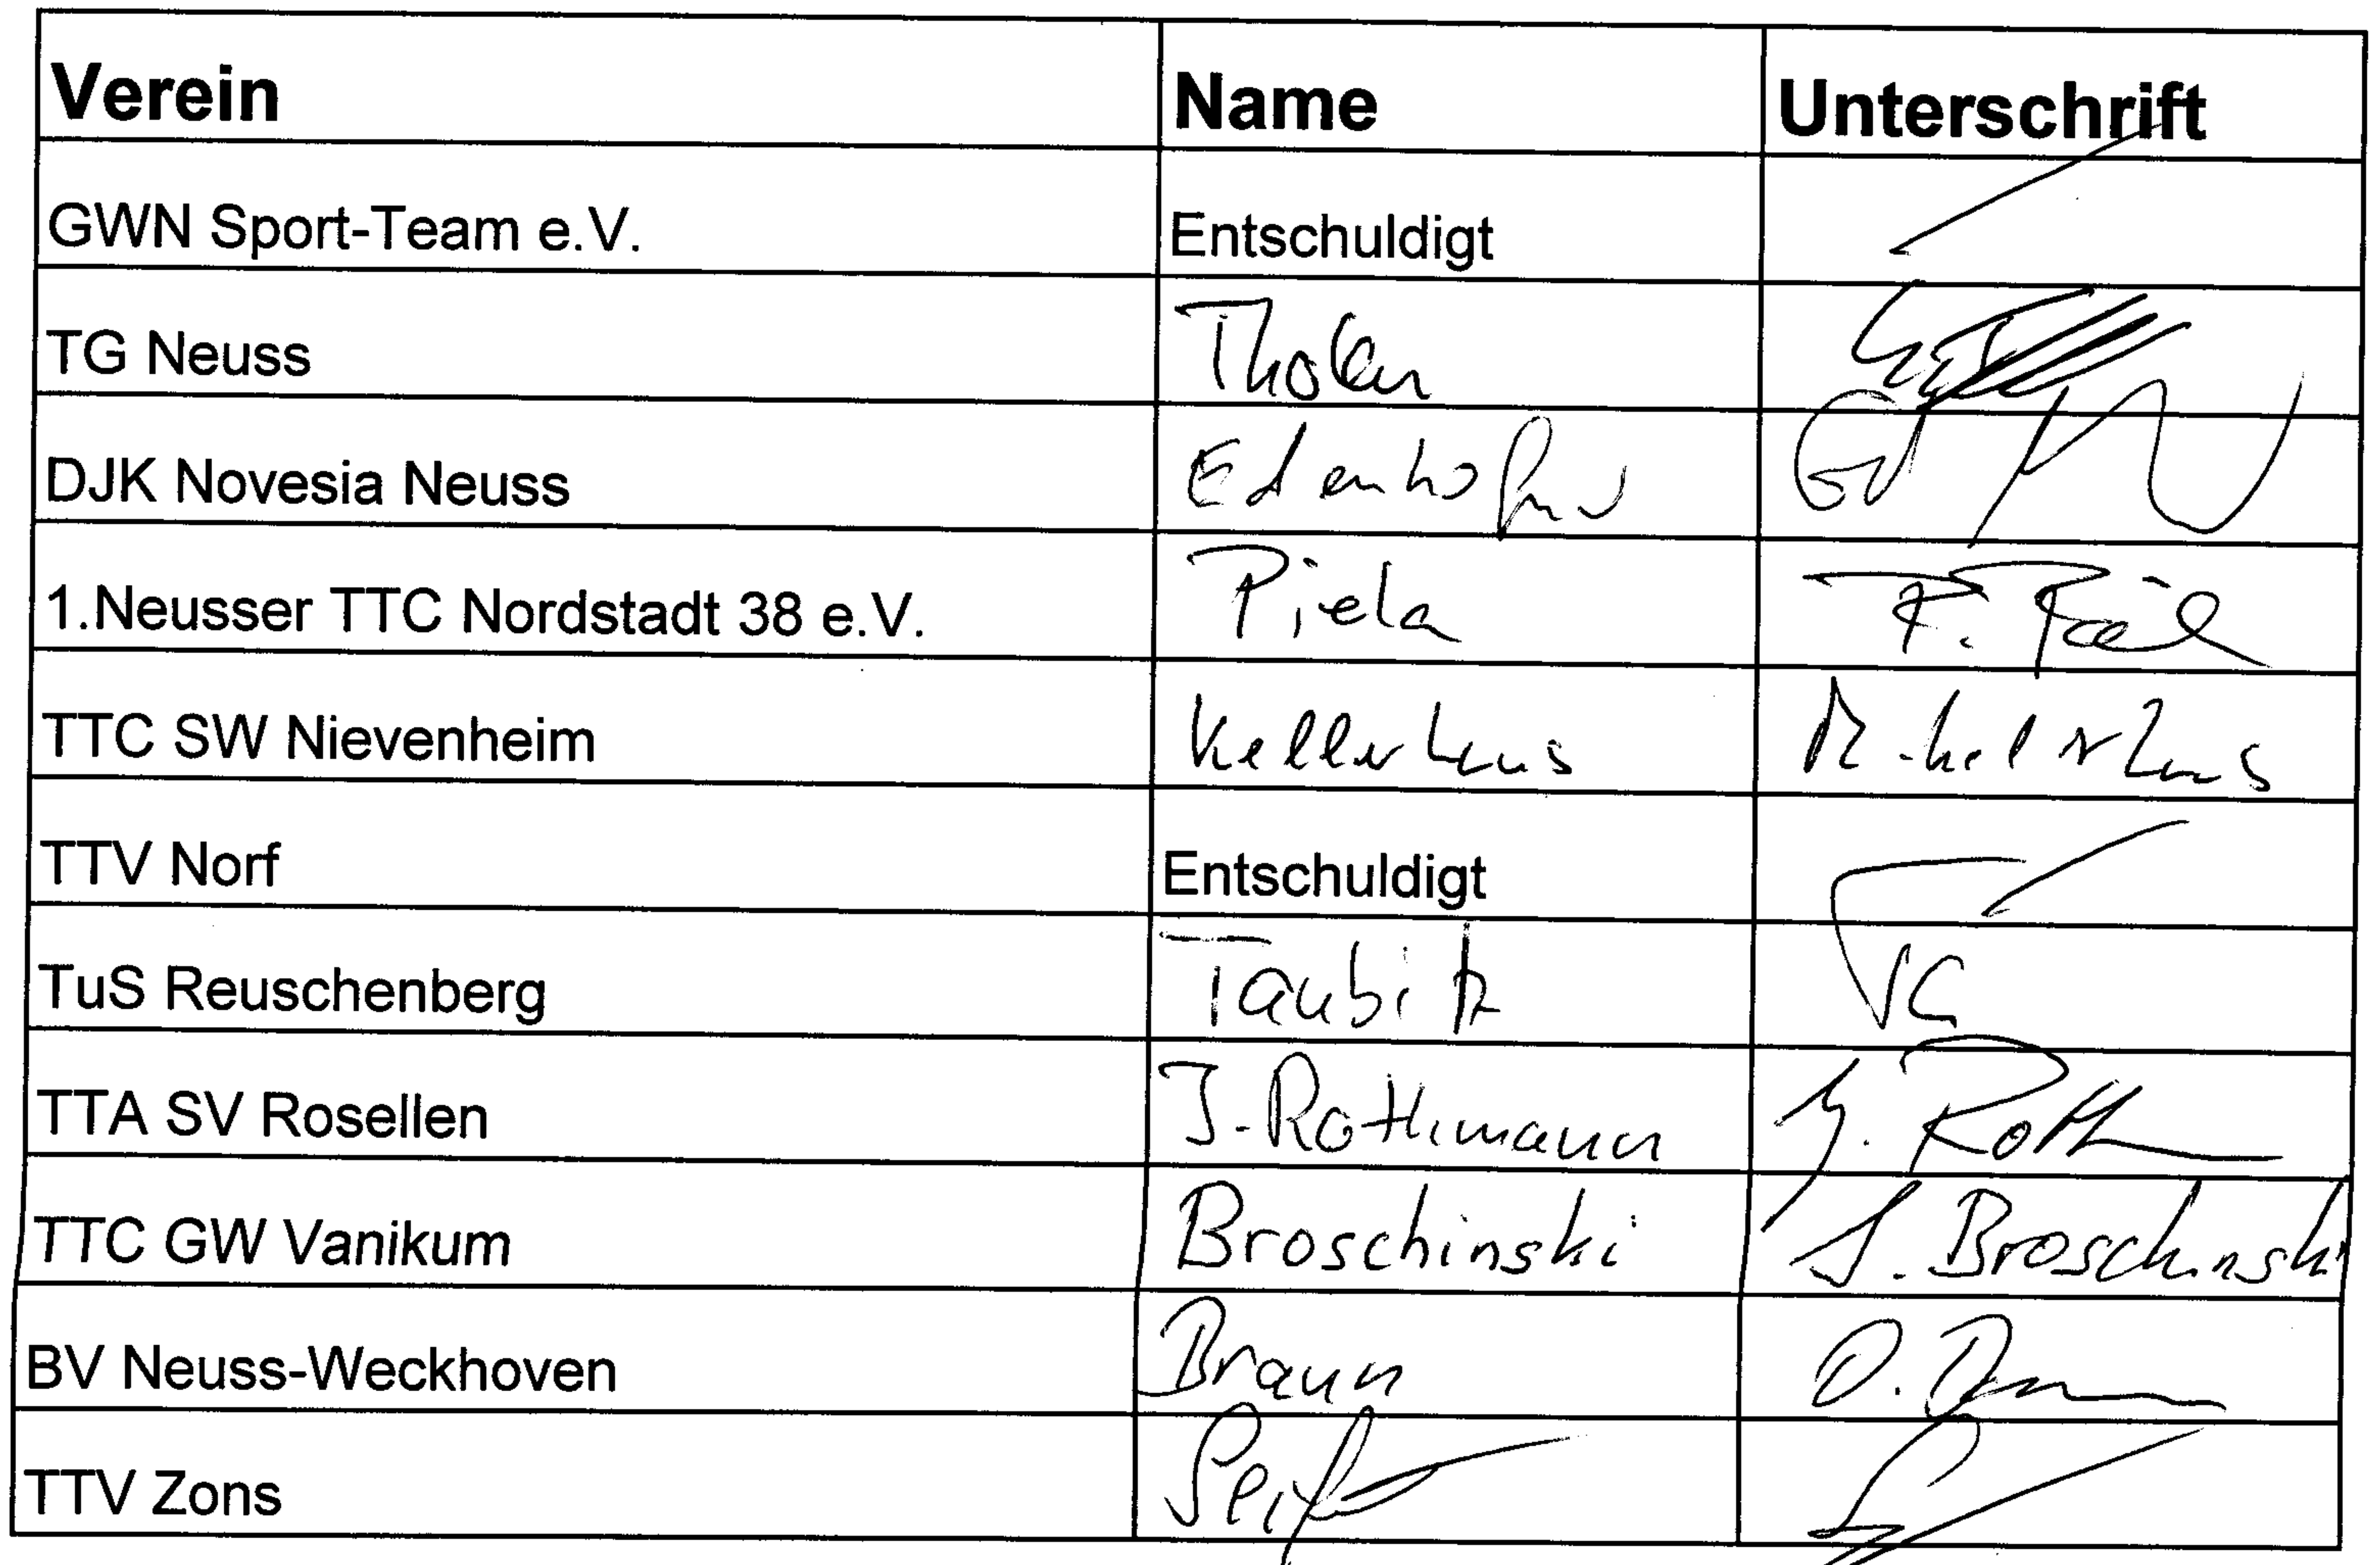 Verein Name Unterschrift
GWN Sport-Team e.V. Entschuldigt
TG Neuss Tholen
DJK Novesia Neuss Edenhofner
1.Neusser TTC Nordstadt 38 e.V. Piela P.
TTC SW Nievenheim Kellerhaus M. Kellerhaus
TTV Norf Entschuldigt
TuS Reuschenberg Taubitz
TTA SV Rosellen J. Rothmann J. Roth
TTC GW Vanikum Broschinski S. Broschinski
BV Neuss-Weckhoven Braun
TTV Zons